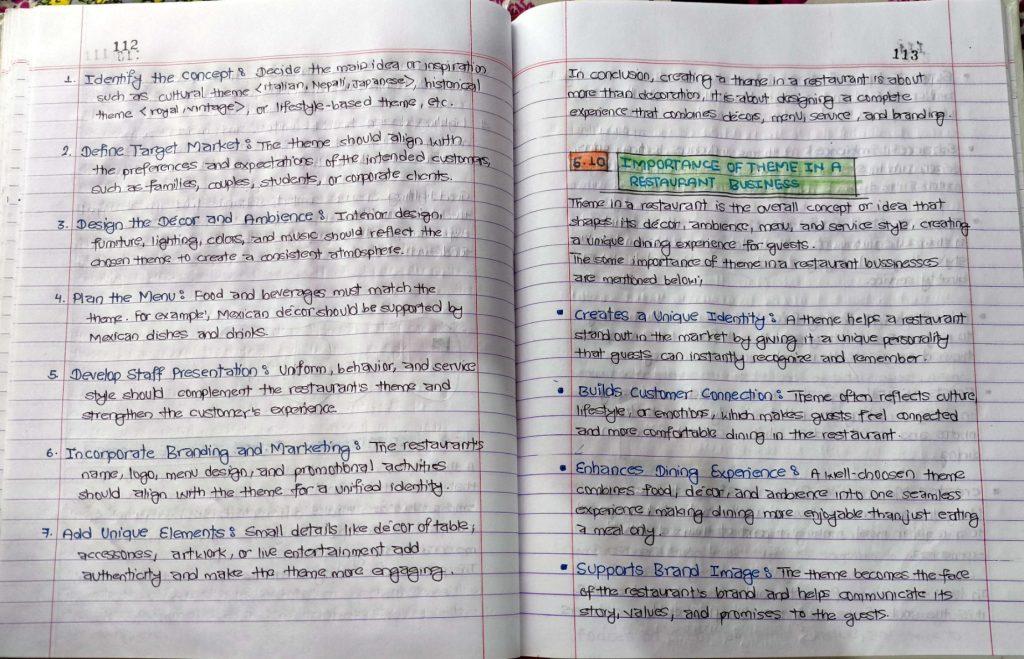 112
1. Identify the concept : Decide the main idea or inspiration
such as cultural theme <italian, Nepali, Japanese>, historical
theme <royal, vintage>, or lifestyle-based theme, etc.
2. Define Target Market : The theme should align with
the preferences and expectations of the intended customers,
such as families, couples, students, or corporate clients.
3. Design the Décor and Ambience : Interior design,
furniture, lighting, colors, and music should reflect the
chosen theme to create a consistent atmosphere.
4. Plan the Menu : Food and beverages must match the
theme. For example, Mexican décor should be supported by
Mexican dishes and drinks.
5. Develop Staff Presentation : Uniform, behavior, and service
style should complement the restaurant's theme and
strengthen the customer's experience.
6. Incorporate Branding and Marketing : The restaurant's
name, logo, menu design, and promotional activities
should align with the theme for a unified identity.
7. Add Unique Elements : Small details like décor of table,
accessories, artwork, or live entertainment add
authenticity and make the theme more engaging.
113
In conclusion, creating a theme in a restaurant is about
more than decoration, it is about designing a complete
experience that combines décors, menu, service, and branding.
5.10 IMPORTANCE OF THEME IN A
RESTAURANT BUSINESS
Theme in a restaurant is the overall concept or idea that
shapes its décor, ambience, menu, and service style, creating
a unique dining experience for guests.
The some importance of theme in a restaurant bussinesses
are mentioned below;
• Creates a Unique Identity : A theme helps a restaurant
stand out in the market by giving it a unique personality
that guests can instantly recognize and remember.
• Builds Customer Connection : Theme often reflects culture,
lifestyle, or emotions, which makes guests feel connected
and more comfortable dining in the restaurant.
• Enhances Dining Experience : A well-choosen theme
combines food, décor, and ambience into one seamless
experience, making dining more enjoyable than just eating
a meal only.
• Supports Brand Image : The theme becomes the face
of the restaurant's brand and helps communicate its
story, values, and promises to the guests.